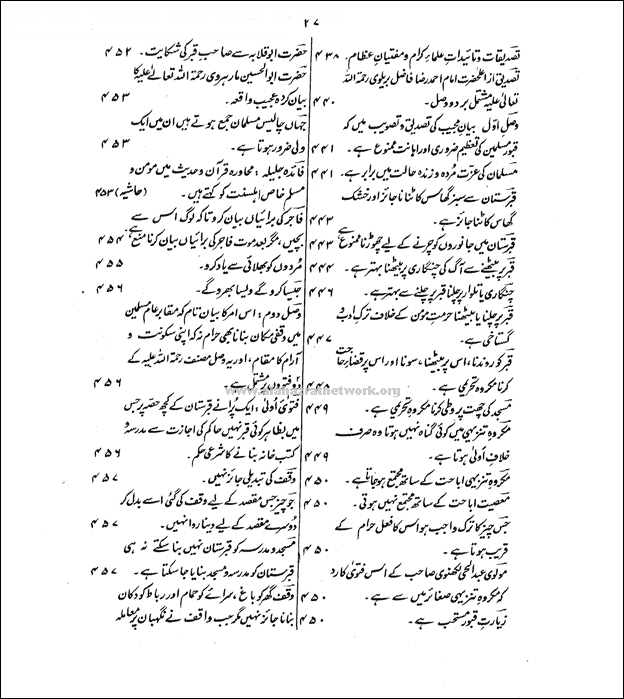 ۲۷
تصدیقات و تائیداتِ علماءِ کرام و مفتیانِ عظام۔ ۴۳۸
تصدیق از اعلحضرت امام احمد رضا فاضل بریلوی رحمۃ اللہ
تعالٰی علیہ مشتمل بر دو وصل۔ ۴۴۰
وصل اوّل بیانِ مجیب کی تصدیق و تصویب میں کہ
قبورِ مسلمین کی تعظیم ضروری اور اہانت ممنوع ہے۔ ۴۴۱
مسلمان کی عزت مُردہ و زندہ حالت میں برابر ہے۔ ۴۴۱
قبرستان سے سبز گھاس کاٹنا ناجائز اور خشک
گھاس کاٹنا جائز ہے۔ ۴۴۳
قبرستان میں جانوروں کو چرنے کے لیے چھوڑنا ممنوع ہے ۴۴۳
قبر پر بیٹھنے سے آگ کی چنگاری پر بیٹھنا بہتر ہے۔ ۴۴۴
چنگاری یا تلوار پر چلنا قبر پر چلنے سے بہتر ہے۔ ۴۴۶
قبر پر چلنا یا بیٹھنا حرمتِ مومن کے خلاف ترکِ ادب و
گستاخی ہے۔ ۴۴۷
قبر کو روندنا، اس پر بیٹھنا، سونا اور اس پر قضائے حاجت
کرنا مکروہِ تحریمی ہے۔ ۴۴۸
مسجد کی چھت پر وطی کرنا مکروہِ تحریمی ہے۔ ۴۴۹
مکروہِ تنزیہی میں کوئی گناہ نہیں ہوتا وہ صرف
خلافِ اَولٰی ہوتا ہے۔ ۴۴۹
مکروہِ تنزیہی اباحت کے ساتھ مجتمع ہو جاتا ہے۔ ۴۵۰
معصیت اباحت کے ساتھ مجتمع نہیں ہوتی۔ ۴۵۰
جس چیز کا ترک واجب ہو اس کا فعل حرام کے
قریب ہوتا ہے۔ ۴۵۰
مولوی عبدالحی لکھنوی صاحب کے اس فتوٰی کا رد
کہ مکروہِ تنزیہی صغائر میں سے ہے۔ ۴۵۰
زیارتِ قبور مستحب ہے۔ ۴۵۰
حضرت ابو قلابہ سے صاحبِ قبر کی شکایت۔ ۴۵۲
حضرت ابوالحسین مارہروی رحمۃ اللہ تعالٰی علیہ کا
بیان کردہ عجیب واقعہ۔ ۴۵۳
جہاں چالیس مسلمان جمع ہوتے ہیں ان میں ایک
ولی ضرور ہوتا ہے۔ ۴۵۳
فائدہ جلیلہ: محاورہ قرآن و حدیث میں مومن و
مسلم خاص اہلسنت کو کہتے ہیں۔ (حاشیہ) ۴۵۳
فاجر کی برائیاں بیان کرو تاکہ لوگ اس سے
بچیں، مگر بعد موت فاجر کی برائیاں بیان کرنا منع ہے ۴۵۴
مُردوں کو بھلائی سے یاد کرو۔ ۴۵۵
جیسا کرو گے ویسا بھرو گے۔ ۴۵۶
وصل دوم: اس امر کا بیان تام کہ مقابرِ عام مسلمین
میں وقفی مکان بنانا بھی حرام نہ کہ اپنی سکونت و
آرام کا مقام، اور یہ وصل مصنف رحمۃ اللہ علیہ کے
دو فتووں پر مشتمل ہے۔ ۴۵۶
www.alahazratnetwork.org
فتویٰ اُولٰی، ایک پرانے قبرستان کے کچھ حصہ پر جس
میں بظاہر کوئی قبر نہیں حاکم کی اجازت سے مدرسہ و
کتب خانہ بنانے کا شرعی حکم۔ ۴۵۶
وقف کی تبدیلی جائز نہیں۔ ۴۵۷
جو چیز جس مقصد کے لیے وقف کی گئی اسے بدل کر
دوسرے مقصد کے لیے دینا روا نہیں۔ ۴۵۷
مسجد و مدرسہ کو قبرستان نہیں بنا سکتے نہ ہی
قبرستان کو مدرسہ و مسجد بنایا جا سکتا ہے۔ ۴۵۷
وقف گھر کو باغ، سرائے کو حمام اور رباط کو دکان
بنانا جائز نہیں مگر جب واقف نے نگہبان پر معاملہ